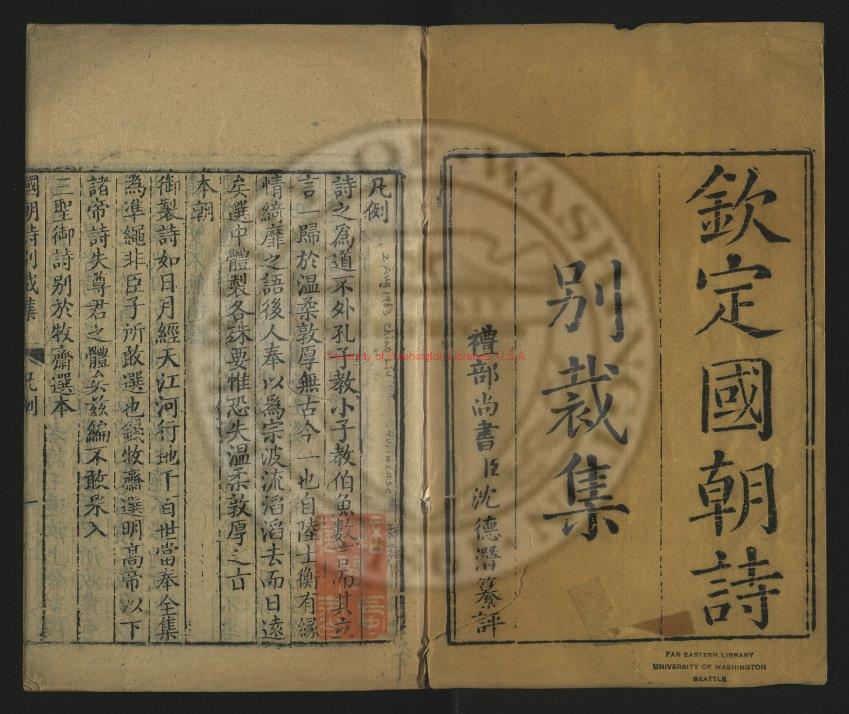 欽定國朝詩
別裁集
禮部尚書臣沈德潛纂評
FAR EASTERN LIBRARY
UNIVERSITY OF WASHINGTON
SEATTLE
凡例
詩之爲道不外孔子教小子教伯魚數言而其立
言一歸於温柔敦厚無古今一也自陸士衡有緣
情綺靡之語後人奉以爲宗波流滔滔去而日遠
矣選中體製各殊要惟恐失温柔敦厚之旨
本朝
御製詩如日月經天江河行地千百世當奉全集
爲準繩非臣子所敢選也錢牧齋選明高帝以下
諸帝詩失尊君之體矣兹編不敢采入
三聖御詩别於牧齋選本
國朝詩别裁集 凡例
2 Aug 1953
University of Washington Libraries, U.S.A